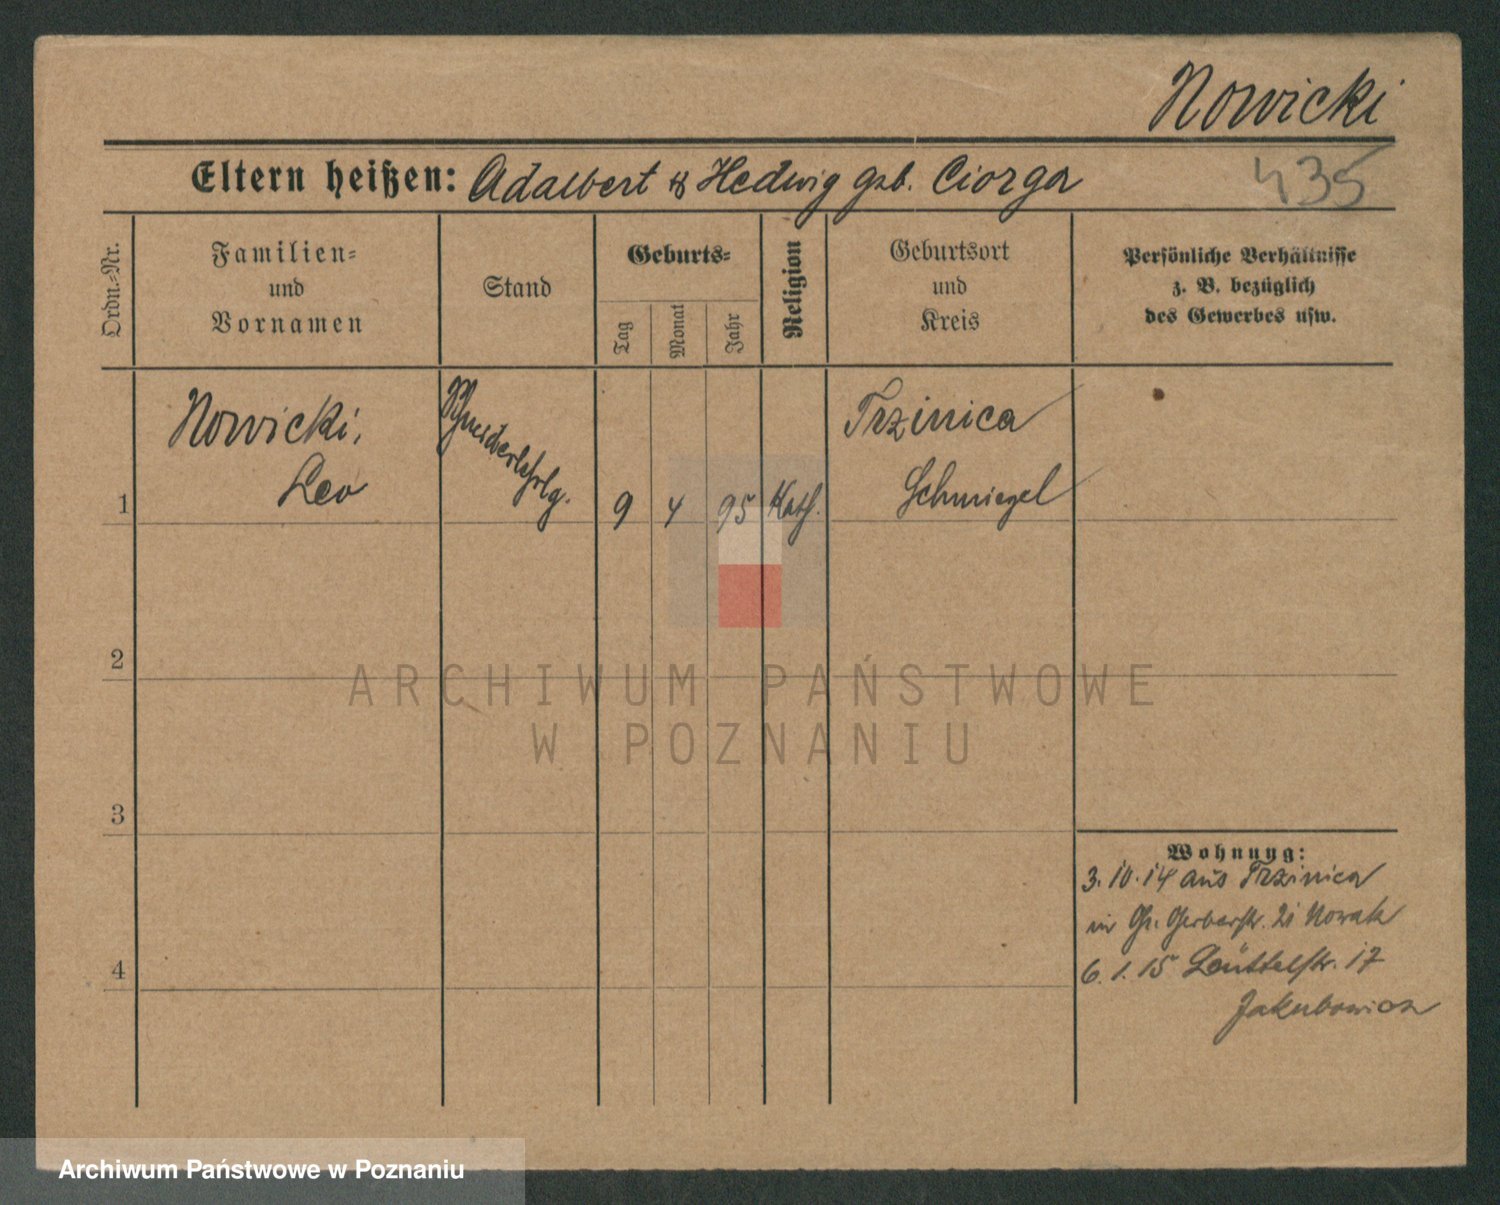 Nowicki
Eltern heißen: Adalbert & Hedwig geb. Ciorga
435
Ordn.-Nr.
Familien-
und
Vornamen
Stand
Geburts-
Tag
Monat
Jahr
Religion
Geburtsort
und
Kreis
Persönliche Verhältnisse
z. B. bezüglich
des Gewerbes usw.
1
Nowicki,
Leo
Schneiderlehrlg.
9
4
95
Kath.
Trzinica
Schmiegel
2
3
4
Wohnung:
3.10.14 aus Trzinica
in Gr. Gerberstr. 21 Nowak
6.1.15 17
Jakubowicz
ARCHIWUM PAŃSTWOWE
W POZNANIU
Archiwum Państwowe w Poznaniu